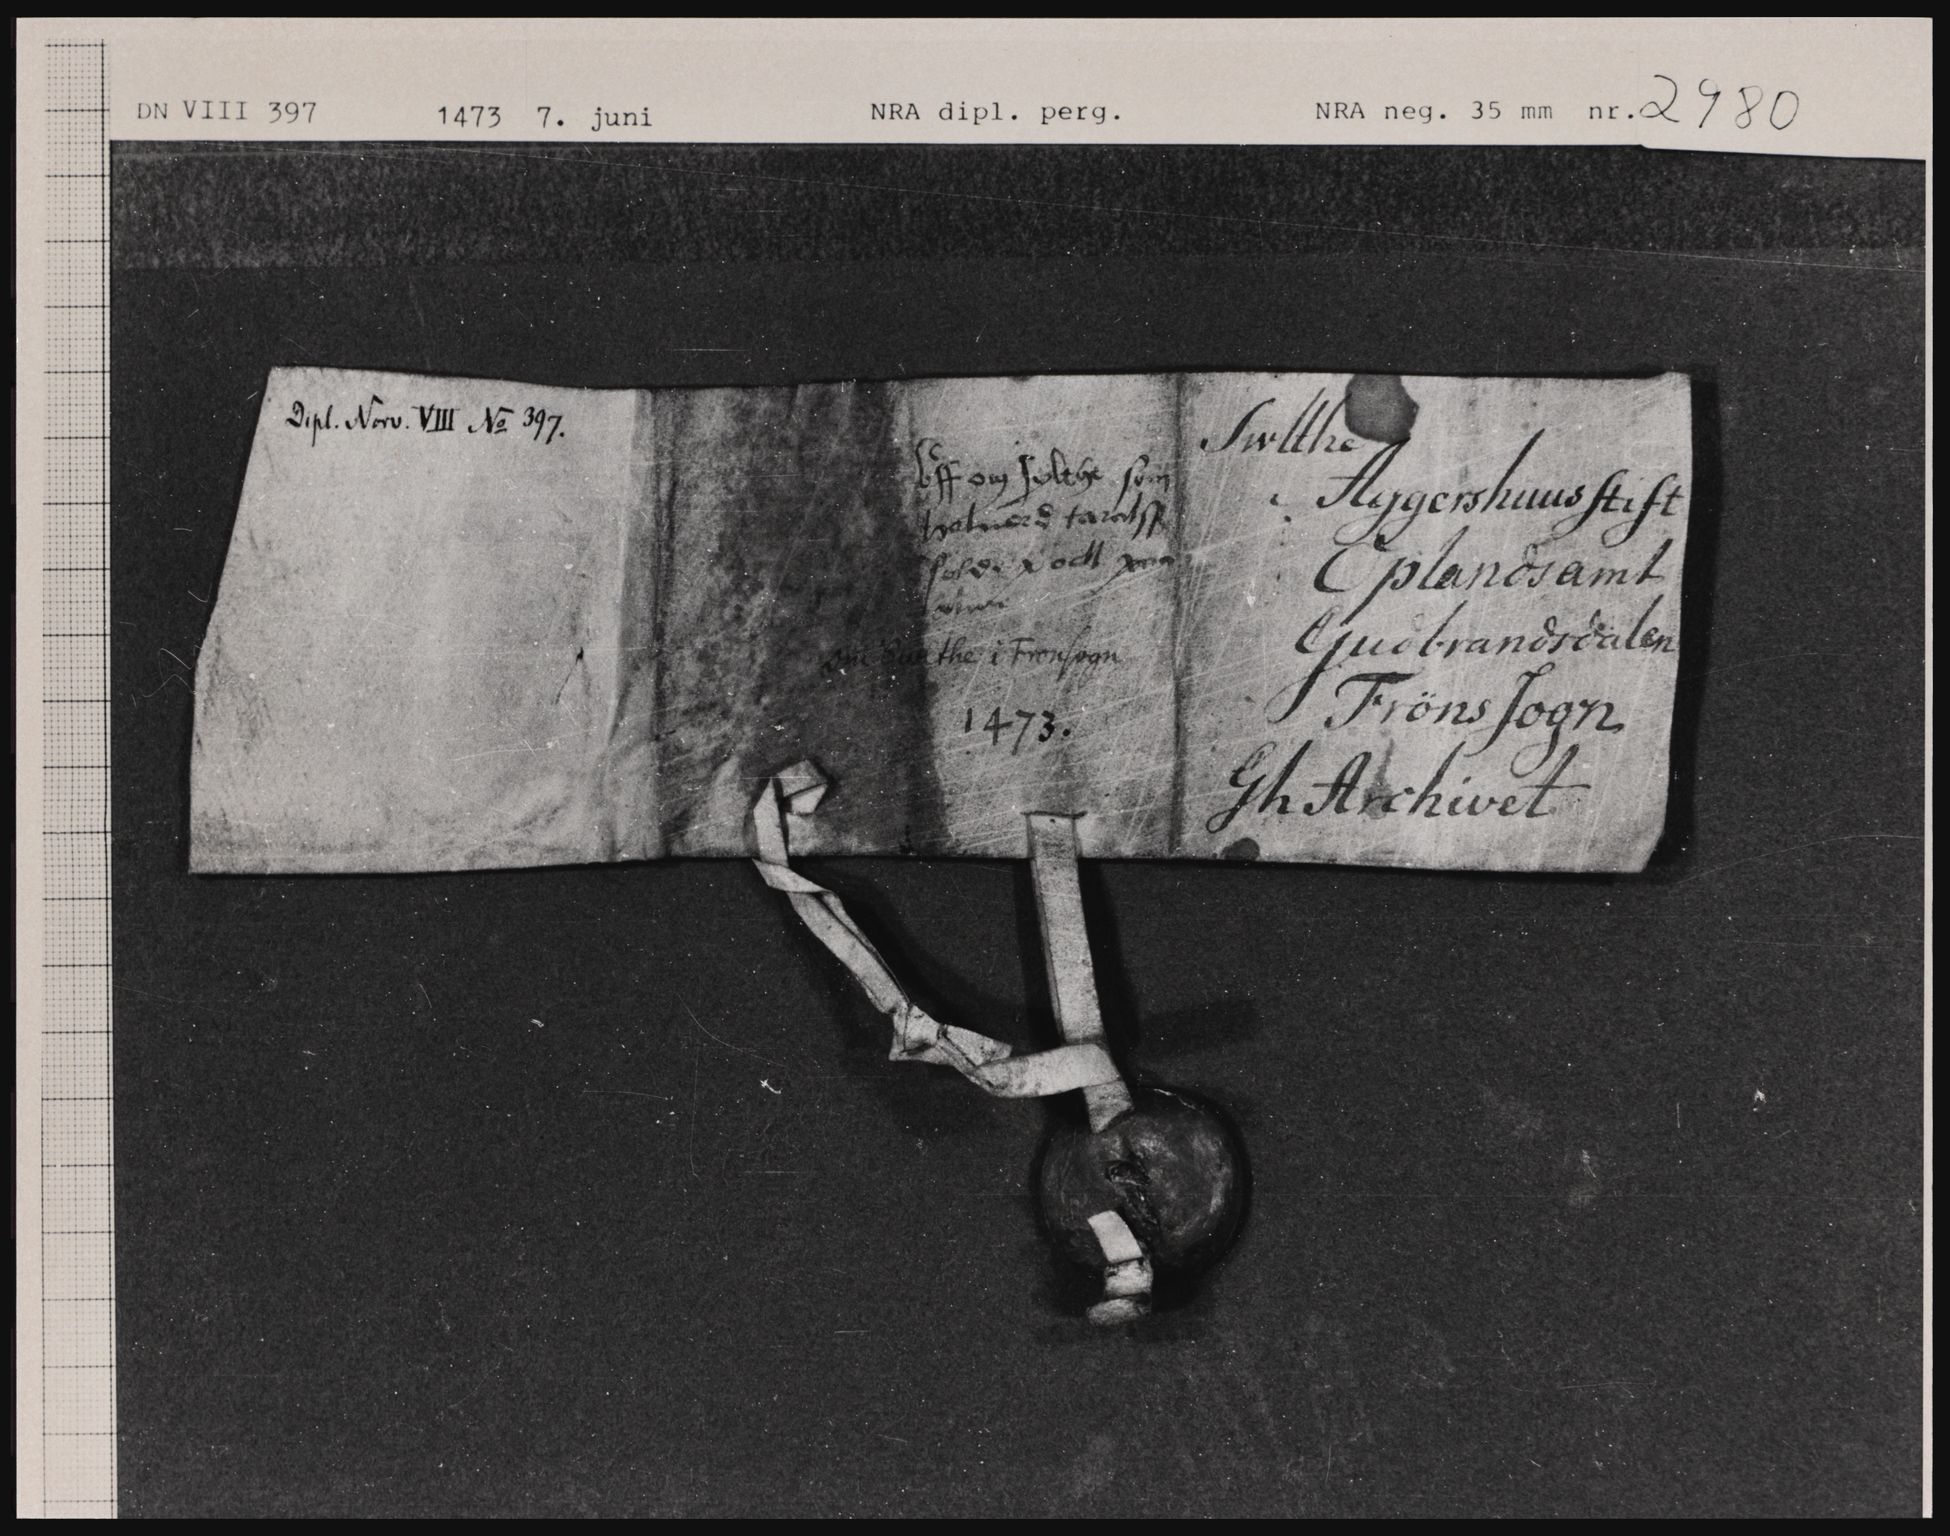 DN VIII 397 1473 7. juni NRA dipl. perg. NRA neg. 35 mm nr. 2980
Dipl. Norv. VIII No 397.
bff om som
1473.
i Fronsogn
Swlthe
Aggershuus stift
Oplandsamt
Gudbrandsdalen
Fröns sogn
Gh Archivet